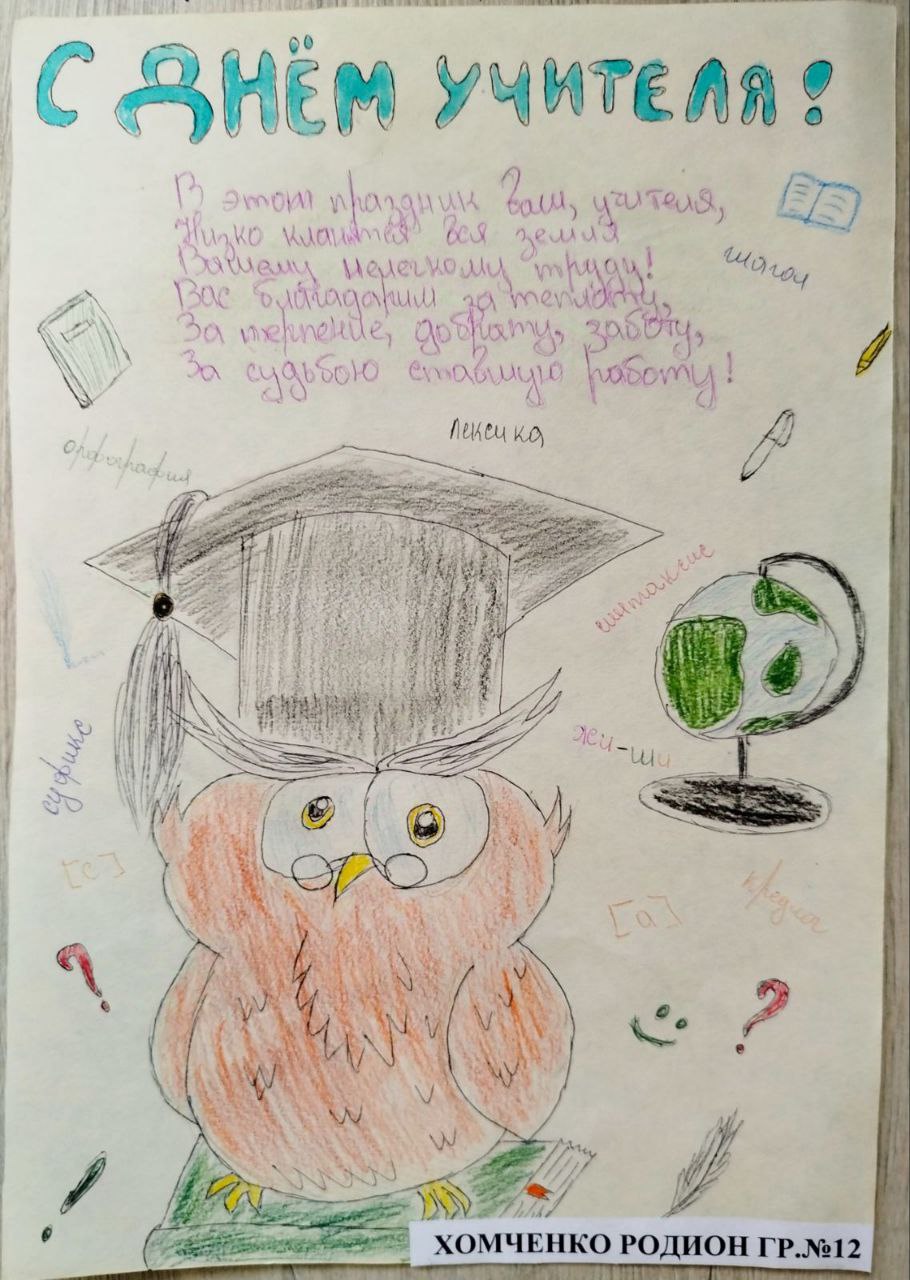 С ДНЁМ УЧИТЕЛЯ!
В этот праздник ваш, учителя,
Низко клаится вся земля
Вашему нелегкому труду!
Вас благадарим за теплоту,
За терпение, добрату, заботу,
За судьбою ставшую работу!
глагол
лексика
орфография
синтаксис
суфикс
жи-ши
[с]
[а]
?
?
!
ХОМЧЕНКО РОДИОН ГР.№12